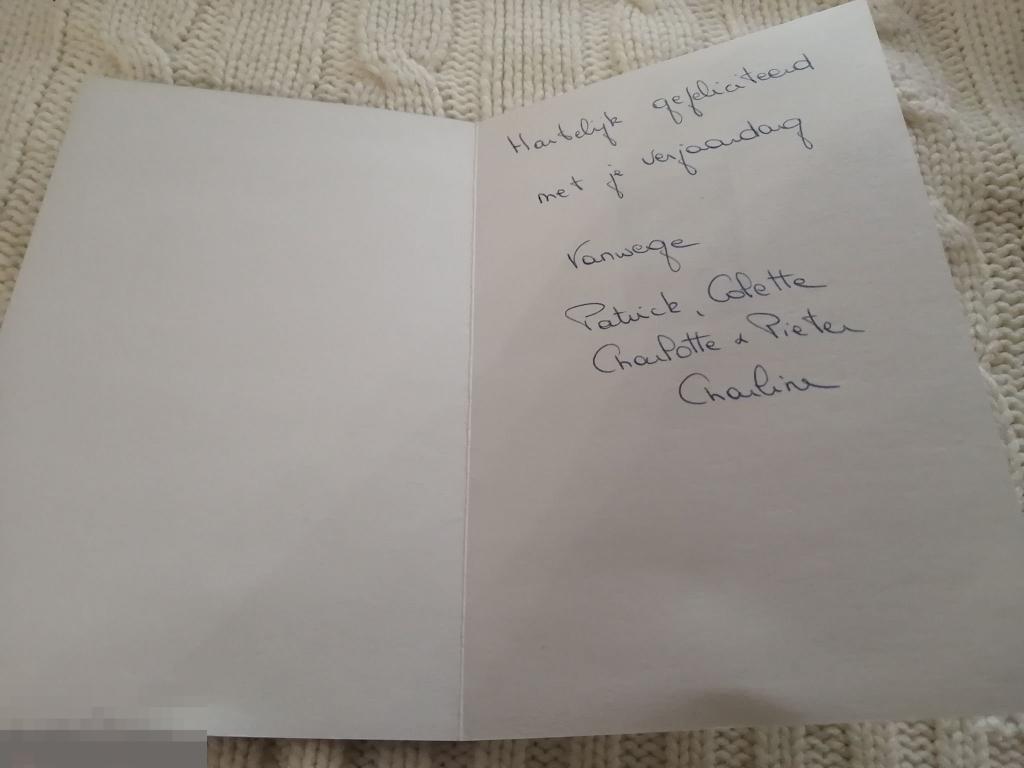 Hartelijk gefeliciteerd
met je verjaardag
Vanwege
Patrick, Colette
Charlotte & Pieter
Charline